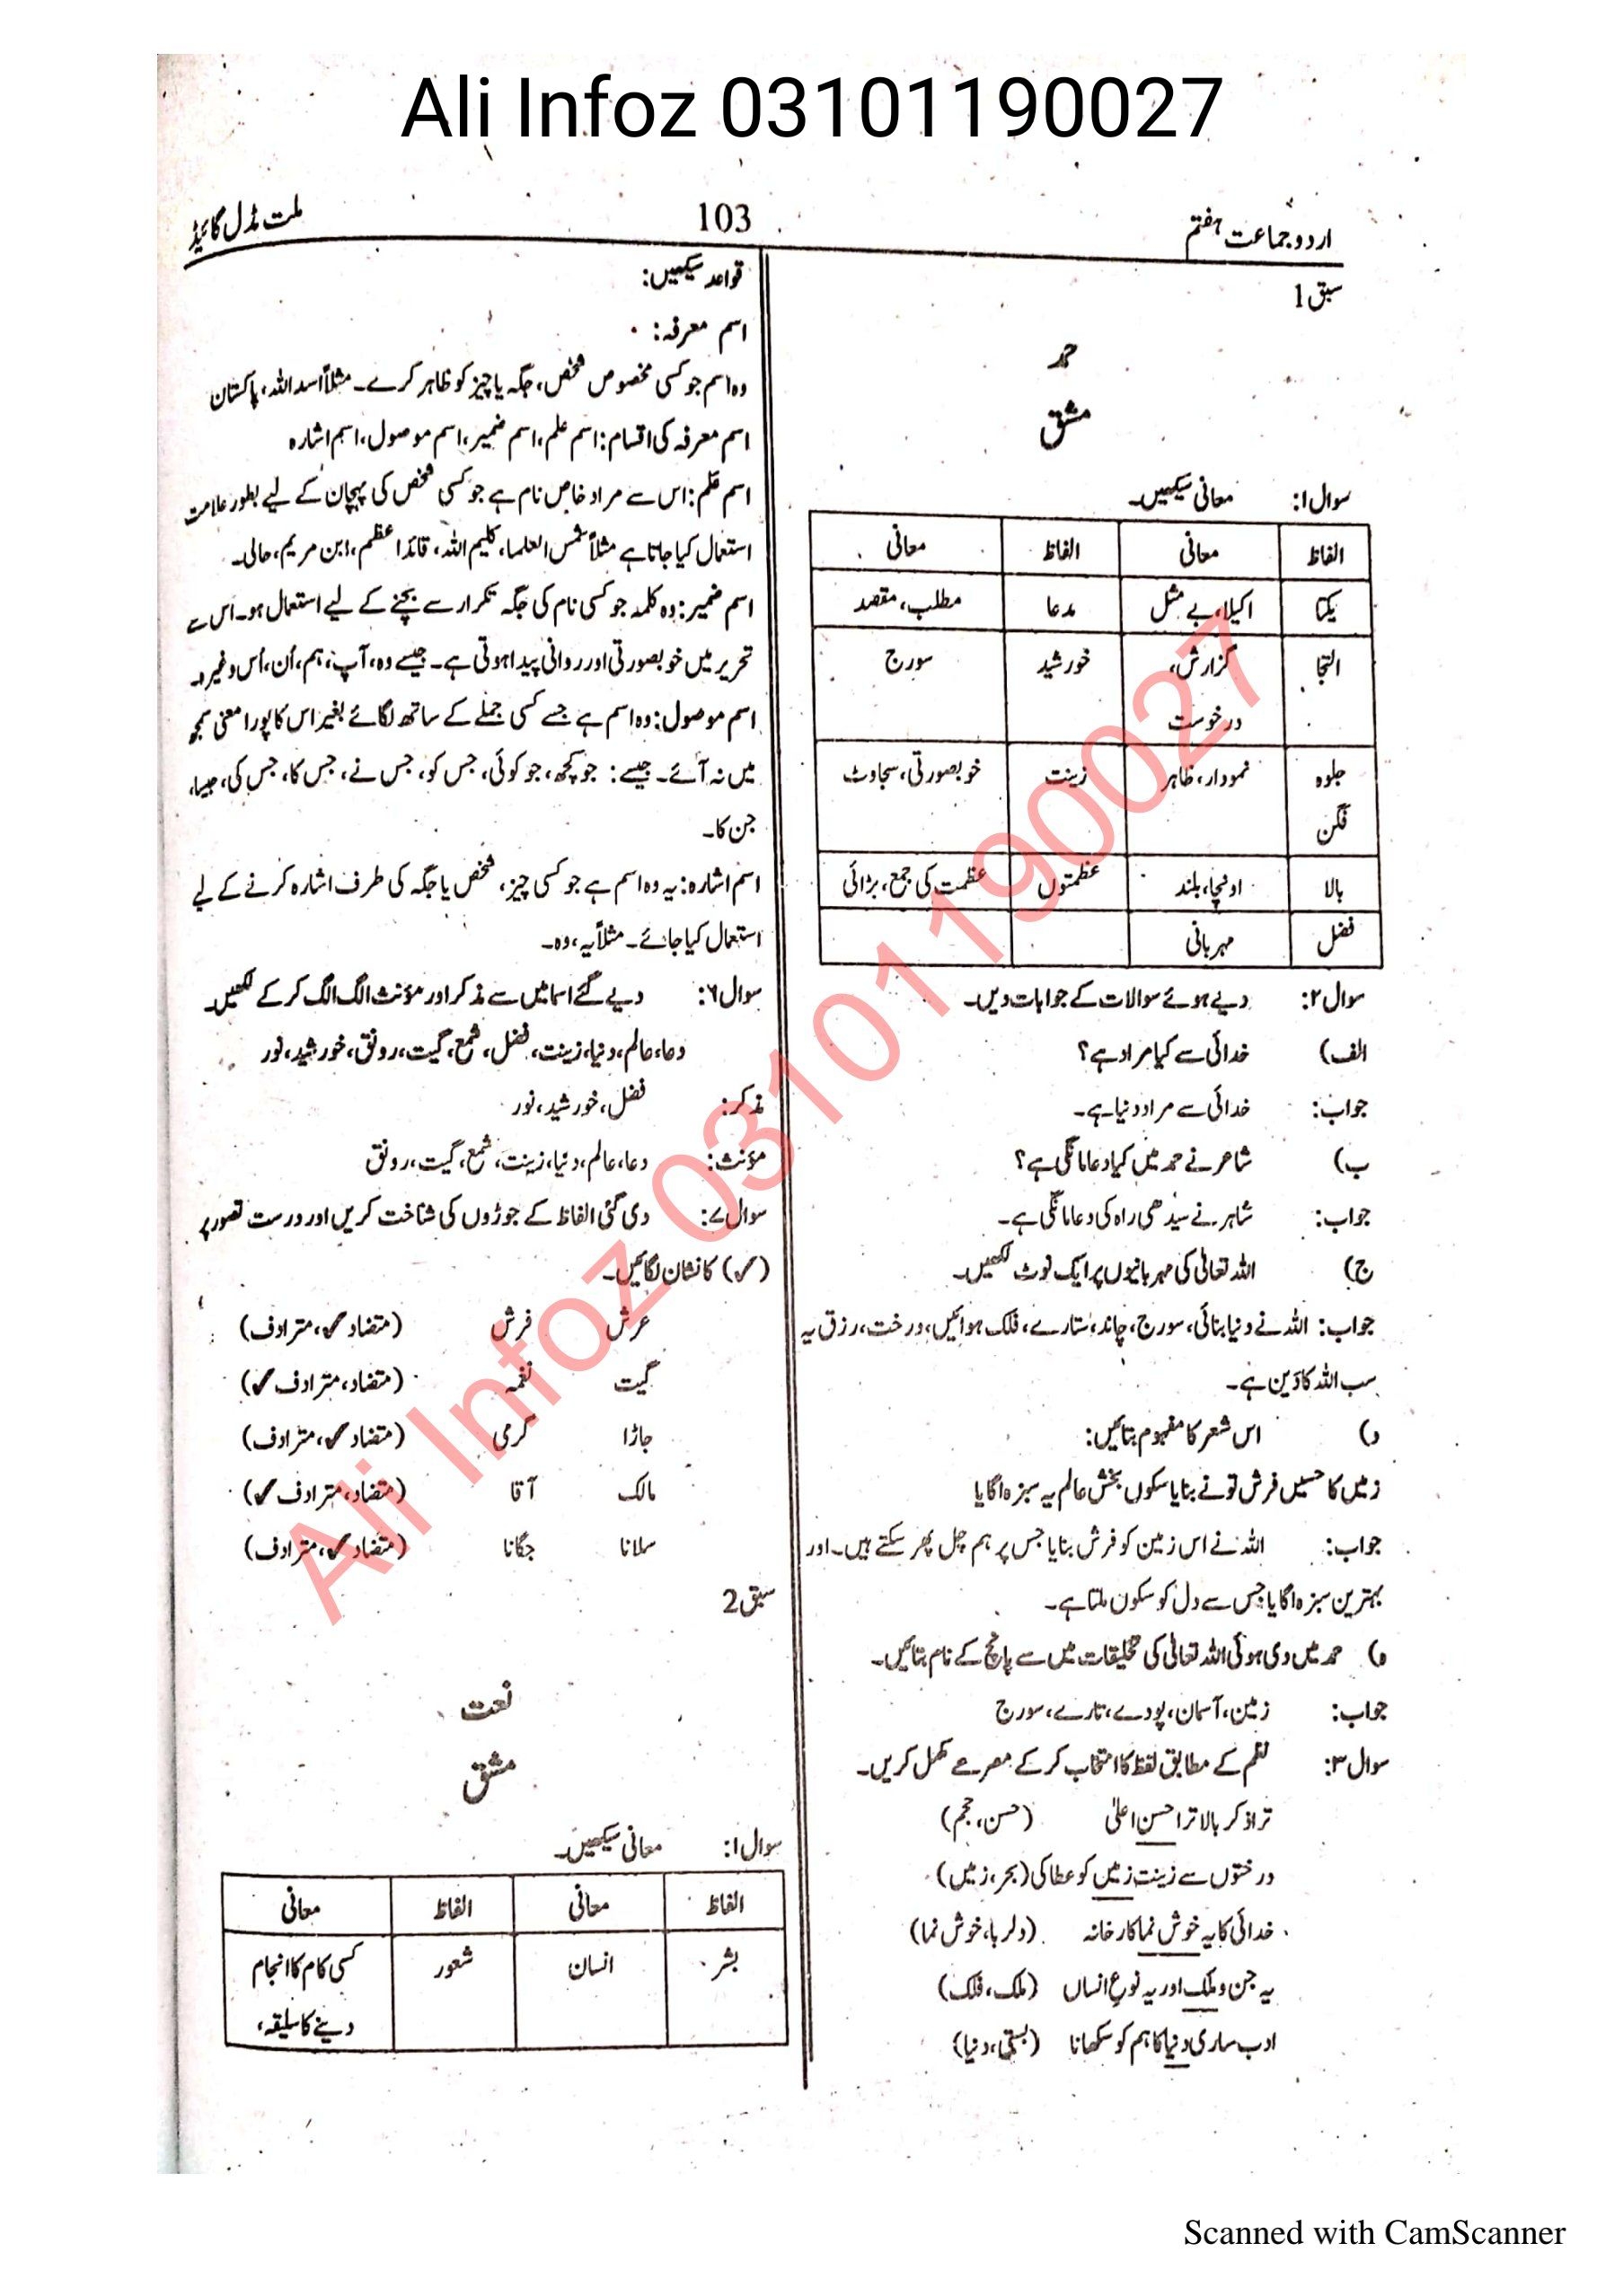 Ali Infoz 03101190027
اردو جماعت ہفتم
103
ملت مڈل گائیڈ
سبق 1
حمد
مشق
سوال ۱: معانی سیکھیں۔
الفاظ معانی الفاظ معانی
یکتا اکیلا، بے مثل مدعا مطلب، مقصد
التجا گزارش، خورشید سورج
درخوست
جلوہ نمودار، ظاہر زینت خوبصورتی، سجاوٹ
فگن
بالا اونچا، بلند عظمتوں عظمت کی جمع، بڑائی
فضل مہربانی
سوال ۲: دیے ہوئے سوالات کے جوابات دیں۔
الف) خدائی سے کیا مراد ہے؟
جواب: خدائی سے مراد دنیا ہے۔
ب) شاعر نے حمد میں کیا دعا مانگی ہے؟
جواب: شاہر نے سیدھی راہ کی دعا مانگی ہے۔
ج) اللہ تعالیٰ کی مہربانیوں پر ایک نوٹ لکھیں۔
جواب: اللہ نے دنیا بنائی، سورج، چاند، ستارے، فلک ہوائیں، درخت، رزق یہ
سب اللہ کا دَین ہے۔
د) اس شعر کا مفہوم بتائیں:
زمیں کا حسیں فرش تو نے بنایا سکوں بخش عالم یہ سبزہ اگایا
جواب: اللہ نے اس زمین کو فرش بنایا جس پر ہم چل پھر سکتے ہیں۔ اور
بہترین سبزہ اگایا جس سے دل کو سکون ملتا ہے۔
ہ) حمد میں دی ہوئی اللہ تعالیٰ کی تخلیقات میں سے پانچ کے نام بتائیں۔
جواب: زمین، آسمان، پودے، تارے، سورج
سوال ۳: نظم کے مطابق لفظ کا انتخاب کر کے مصرعے مکمل کریں۔
ترا ذکر بالا ترا حسن اعلیٰ (حسن، حجم)
درختوں سے زینت زمیں کو عطا کی (بحر، زمیں)
خدائی کا یہ خوش نما کارخانہ (دلربا، خوش نما)
یہ جن و ملک اور یہ نوعِ انساں (ملک، فلک)
ادب ساری دنیا کا ہم کو سکھانا (بستی، دنیا)
قواعد سیکھیں:
اسم معرفہ:
وہ اسم جو کسی مخصوص شخص، جگہ یا چیز کو ظاہر کرے۔ مثلاً اسد اللہ، پاکستان
اسم معرفہ کی اقسام: اسم علم، اسم ضمیر، اسم موصول، اسم اشارہ
اسم عَلم: اس سے مراد خاص نام ہے جو کسی شخص کی پہچان کے لیے بطور علامت
استعمال کیا جاتا ہے مثلاً شمس العلما، کلیم اللہ، قائد اعظم، ابن مریم، حالی۔
اسم ضمیر: وہ کلمہ جو کسی نام کی جگہ تکرار سے بچنے کے لیے استعمال ہو۔ اس سے
تحریر میں خوبصورتی اور روانی پیدا ہوتی ہے۔ جیسے وہ، آپ، ہم، اُن، اُس وغیرہ۔
اسم موصول: وہ اسم ہے جسے کسی جملے کے ساتھ لگائے بغیر اس کا پورا معنی سمجھ
میں نہ آئے۔ جیسے: جو کچھ، جو کوئی، جس کو، جس نے، جس کا، جس کی، جیسا،
جن کا۔
اسم اشارہ: یہ وہ اسم ہے جو کسی چیز، شخص یا جگہ کی طرف اشارہ کرنے کے لیے
استعمال کیا جائے۔ مثلاً یہ، وہ۔
سوال ۶: دیے گئے اسما میں سے مذکر اور مؤنث الگ الگ کر کے لکھیں۔
دعا، عالم، دنیا، زینت، فضل، شمع، گیت، رونق، خورشید، نور
مذکر: فضل، خورشید، نور
مؤنث: دعا، عالم، دنیا، زینت، شمع، گیت، رونق
سوال ۷: دی گئی الفاظ کے جوڑوں کی شناخت کریں اور درست تصور پر
(✓) کا نشان لگائیں۔
عرش فرش (متضاد ✓، مترادف)
گیت نغمہ (متضاد، مترادف ✓)
جاڑا گرمی (متضاد ✓، مترادف)
مالک آقا (متضاد، مترادف ✓)
سلانا جگانا (متضاد ✓، مترادف)
سبق 2
نعت
مشق
سوال ۱: معانی سیکھیں۔
الفاظ معانی الفاظ معانی
بشر انسان شعور کسی کام کا انجام
دینے کا سلیقہ،
Ali Infoz 03101190027
Scanned with CamScanner